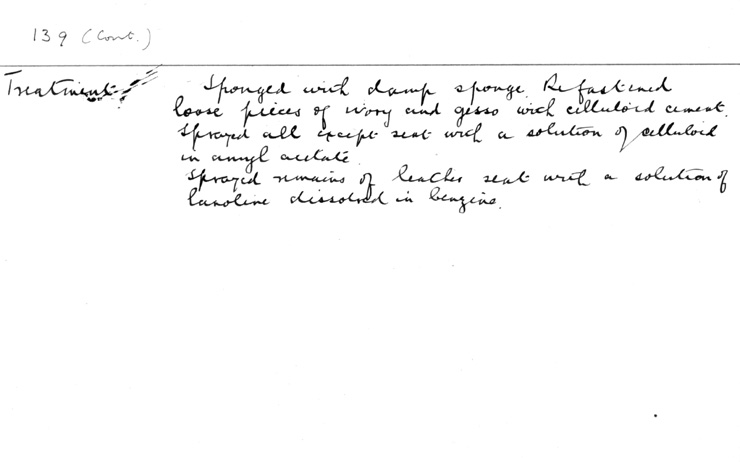 139 (Cont.)
Treatment Sponged with damp sponge. Refastened
loose pieces of ivory and gesso with celluloid cement.
Sprayed all except seat with a solution of celluloid
in amyl acetate.
Sprayed remains of leather seat with a solution of
lanoline dissolved in benzine.